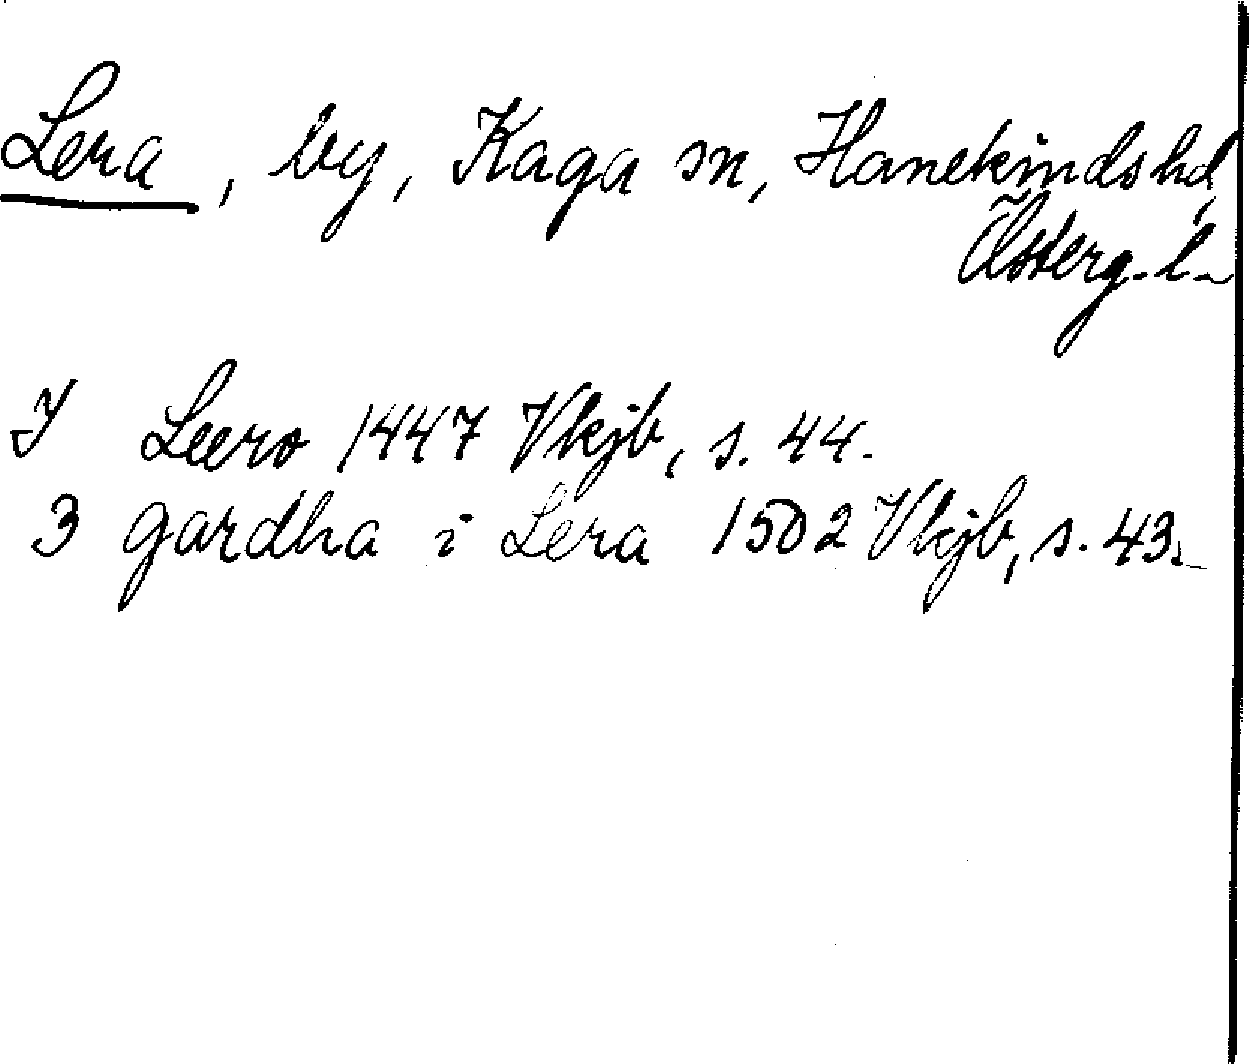 Lera, by, Kaga sn, Hanekinds hd,
Österg. l.
I Leero 1447 Vkjb, s. 44.
3 gardha i Lera 1502 Vkjb, s. 43.